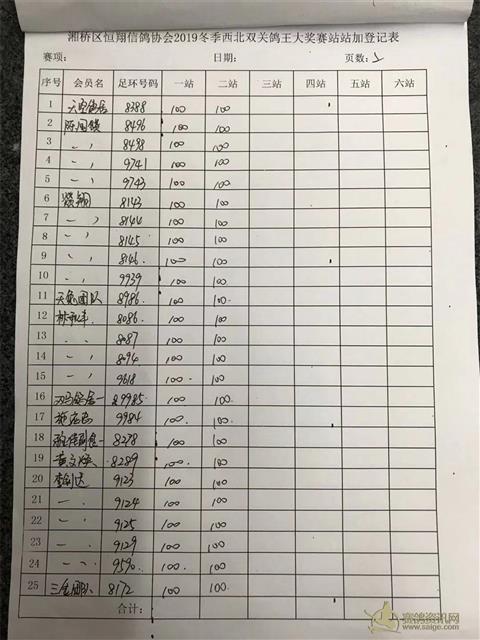 湘桥区恒翔信鸽协会2019冬季西北双关鸽王大奖赛站站加登记表
赛项: 日期: 页数:
序号 会员名 足环号码 一站 二站 三站 四站 五站 六站
1 8388 100 100
2 陈国锁 8496 100 100
3 〃 8498 100 100
4 〃 9741 100 100
5 〃 9743 100 100
6 8143 100 100
7 〃 8144 100 100
8 〃 8145 100 100
9 〃 8146 100 100
10 〃 9939 100 100
11 团队 8986 100 100
12 8086 100 100
13 〃 8087 100 100
14 〃 8094 100 100
15 〃 9618 100 100
16 89985 100 100
17 9984 100 100
18 8278 100 100
19 8289 100 100
20 9123 100 100
21 〃 9124 100 100
22 〃 9125 100 100
23 〃 9129 100 100
24 〃 9590 100 100
25 8172 100 100
合计:
赛鸽资讯网
www.saige.com